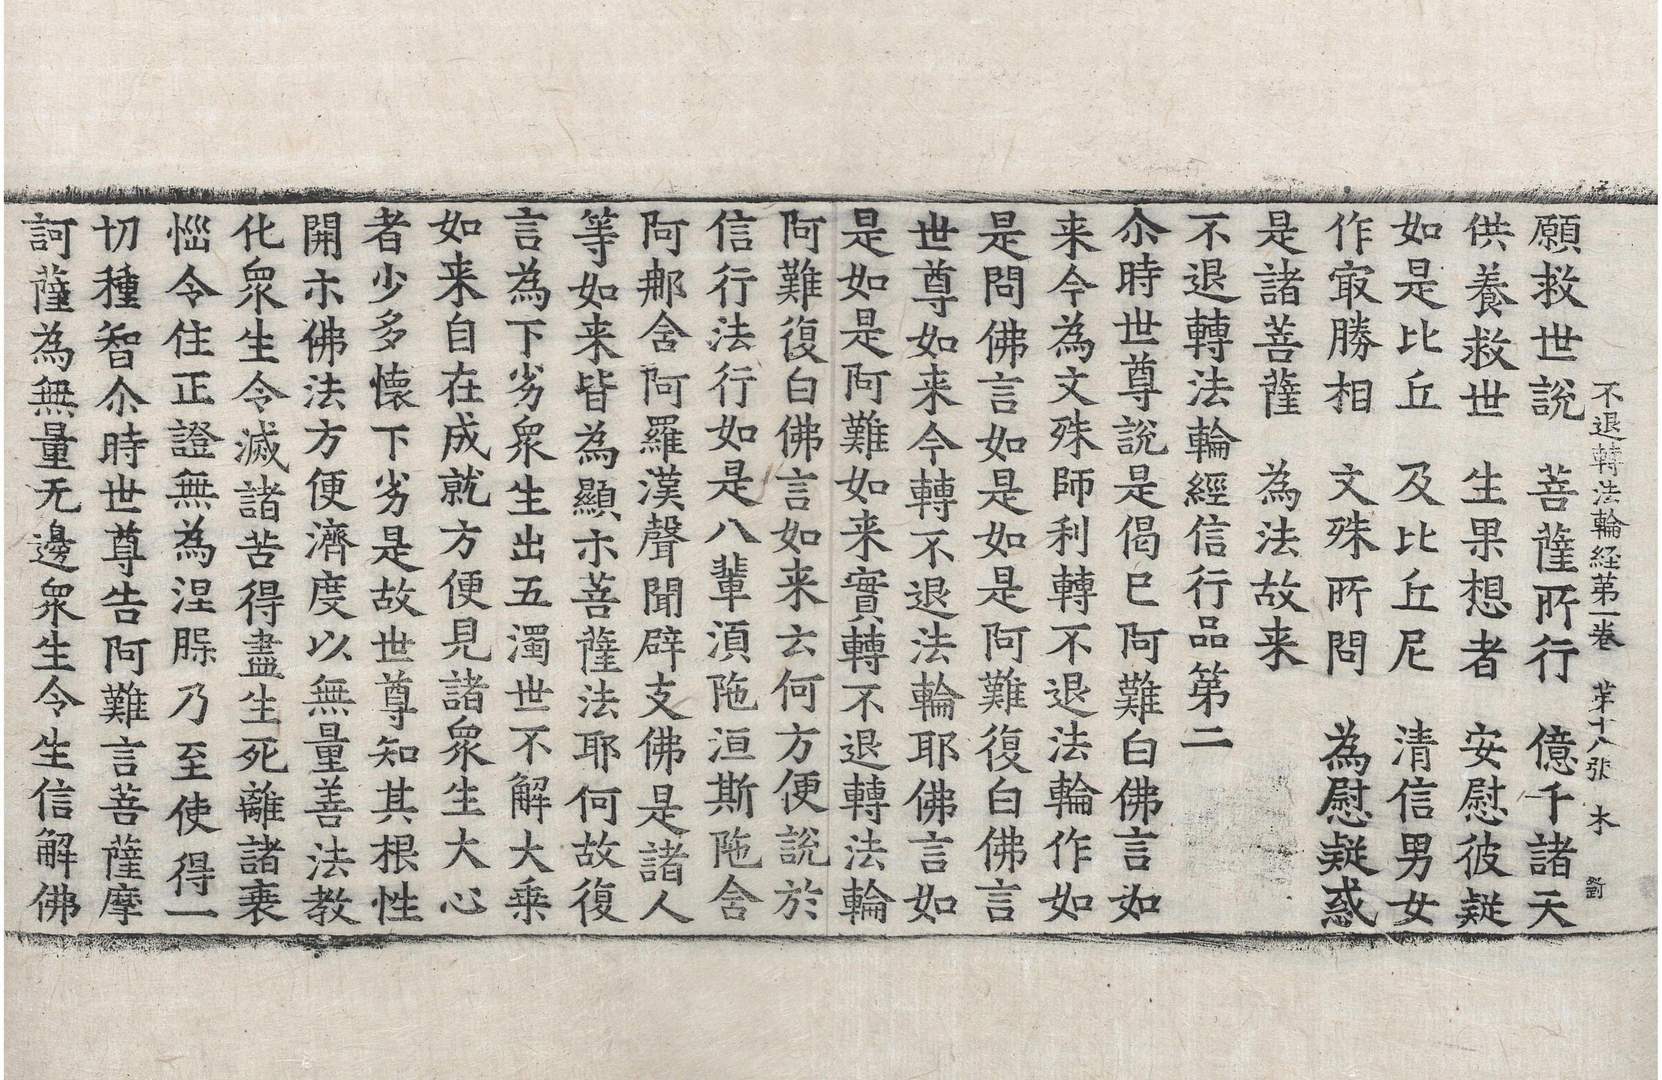 不退轉法輪経苐一卷 苐十八張 木 劉
願救世說 菩薩所行 億千諸天
供養救世 生果想者 安慰彼疑
如是比丘 及比丘尼 清信男女
作㝡勝相 文殊所問 為慰疑惑
是諸菩薩 為法故来
不退轉法輪經信行品第二
尒時世尊說是偈已阿難白佛言如
来今為文殊師利轉不退法輪作如
是問佛言如是如是阿難復白佛言
世尊如来今轉不退法輪耶佛言如
是如是阿難如来實轉不退轉法輪
阿難復白佛言如来云何方便說於
信行法行如是八輩湏陁洹斯陁含
阿那舍阿羅漢聲聞辟支佛是諸人
等如来皆為顯示菩薩法耶何故復
言為下劣衆生出五濁世不解大乗
如来自在成就方便見諸衆生大心
者少多懐下劣是故世尊知其根性
開示佛法方便濟度以無量善法教
化衆生令滅諸苦得盡生死離諸衰
惱令住正證無為涅槃乃至使得一
切種智尒時世尊告阿難言菩薩摩
訶薩為無量无邊衆生令生信解佛